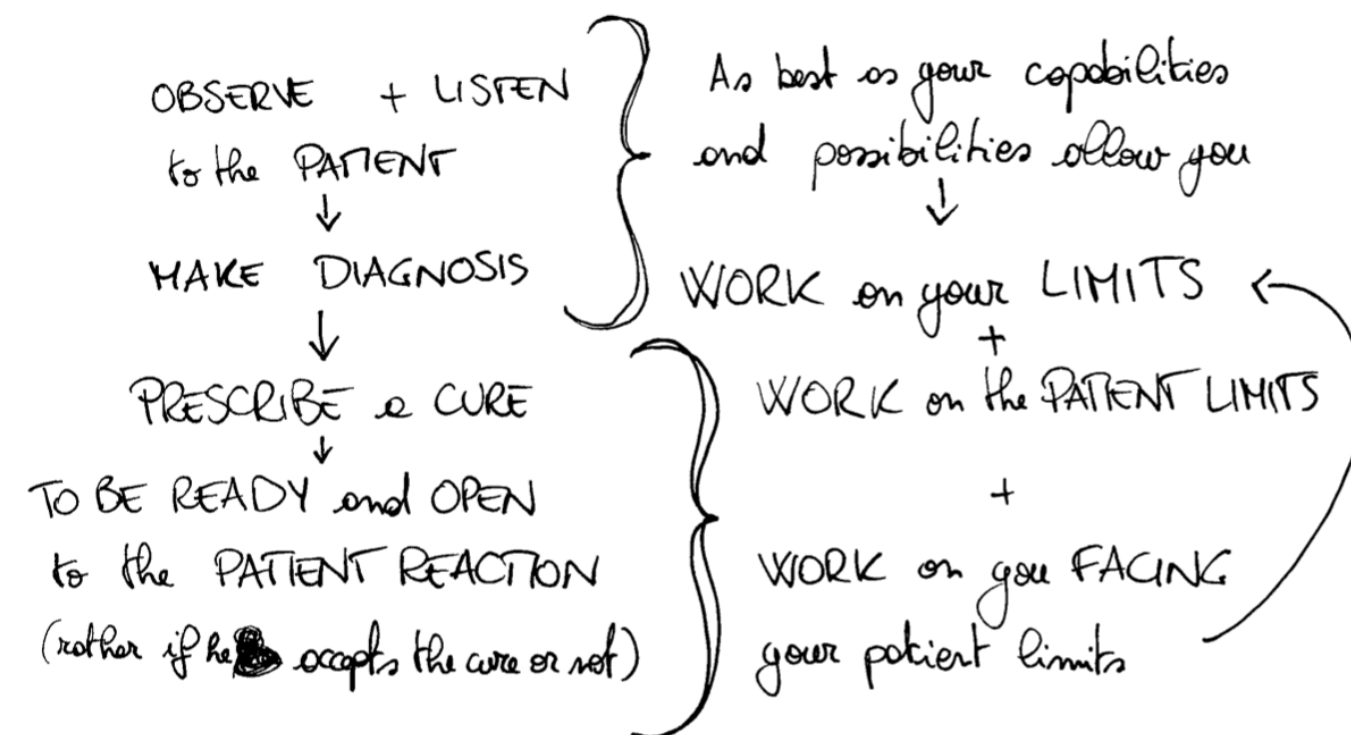 OBSERVE + LISTEN
to the PATIENT
↓
MAKE DIAGNOSIS
↓
PRESCRIBE a CURE
↓
TO BE READY and OPEN
to the PATIENT REACTION
(rather if he accepts the cure or not)
As best as your capabilities
and possibilities allow you
↓
WORK on your LIMITS
+
WORK on the PATIENT LIMITS
+
WORK on you FACING
your patient limits